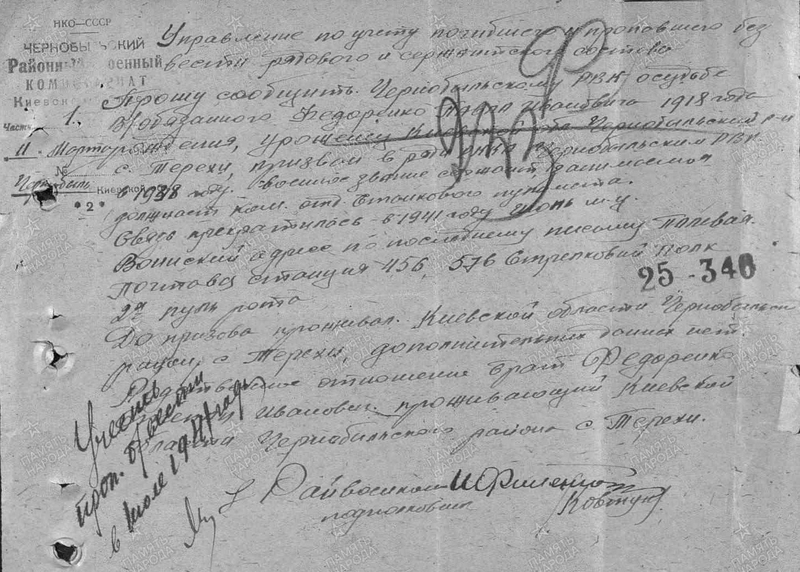 НКО—СССР
ЧЕРНОБЫЛЬСКИЙ
Районный Военный
КОМИССАРИАТ
Киевской
Часть
11. Марта
№
Чернобыль Киевской
* 2 *
Управление по учету погибшего и пропавшего без
вести рядового и сержантского состава
1. Прошу сообщить Чернобыльскому РВК о судьбе
в/обязанного Федоренко Ивановича 1918 года
рождения, урожен. Киевской обл. Чернобыльский р-н
с. Терехи, призван в ряды РККА Чернобыльским РВК
в 1938 году. военное звание сержант занимаемая
должность ком. отд. станкового пулемета.
Связь прекратилась в 1941 году июнь м-ц.
Воинский адрес по последнему письму Полевая
почтовая станция 456, 576 Стрелковый Полк
2я пуль рота
25 - 346
До призова проживал. Киевской области Чернобыльский
район с. Терехи, дополнительных данных нет
Родственное отношение брат Федоренко
Иванович проживающий Киевской
области Чернобыльского района с. Терехи.
Учесть
проп. б/вести
в июле 1941 года
Райвоенком
подполковник Ковтун
ПАМЯТЬ НАРОДА